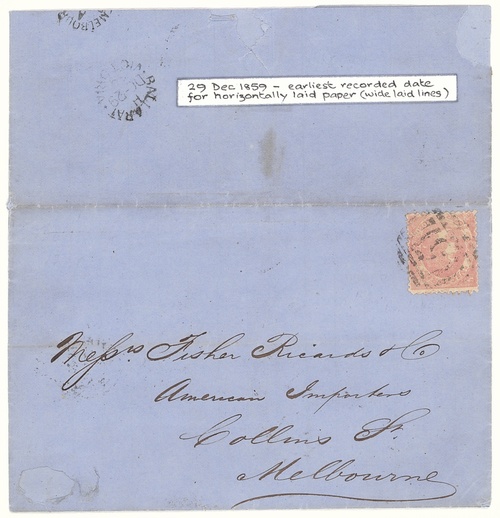 MELBOU
BALLARAT
29 Dec 1859 – earliest recorded date
for horizontally laid paper (wide laid lines)
Messrs Fisher Ricards & Co
American Importers
Collins St.
Melbourne